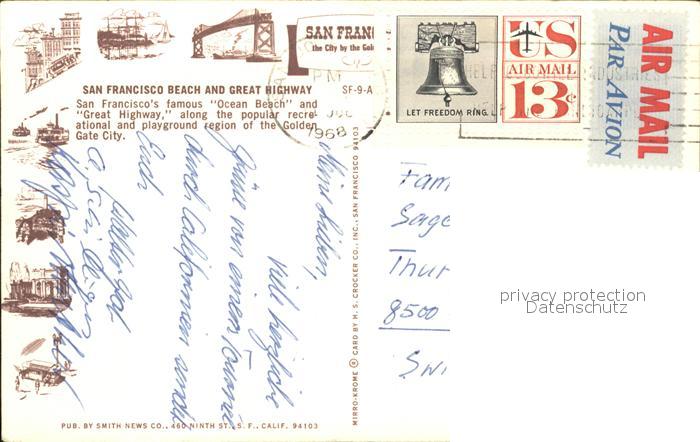 SAN FRANC
the City by the Gold
SAN FRANCISCO BEACH AND GREAT HIGHWAY SF-9-A
San Francisco's famous "Ocean Beach" and
"Great Highway," along the popular recre-
ational and playground region of the Golden
Gate City.
PM
1968
LET FREEDOM RING
US
AIR MAIL
13¢
AIR MAIL
PAR AVION
Meine Lieben,
viel herzliche
Grüsse von einer Tournee
durch Californien sendet
Euch
MIRRO-KROME ® CARD BY H. S. CROCKER CO., INC., SAN FRANCISCO, CALIF. 94103
Fam
Sage
Thur
8500
Swi
privacy protection
Datenschutz
PUB. BY SMITH NEWS CO., 460 NINTH ST., S. F., CALIF. 94103